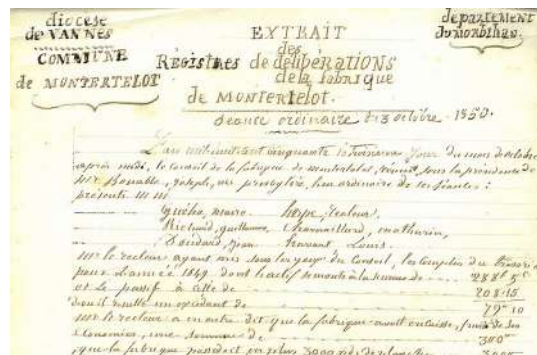 diocèse
de VANNES
COMMUNE
de MONTERTELOT
EXTRAIT
des
Régistres de délibérations
de la fabrique
de MONTERTELOT.
département
du morbihan
séance ordinaire du 3 octobre 1850.
L'an mil huit cent cinquante le troisième jour du mois d'octobre
après midi, le Conseil de la fabrique de montertelot, réuni sous la présidence de
Mr Bonable, Joseph, au presbytère, lieu ordinaire de ses séances :
présents M M
Guého, maire. recteur,
Richard, guillaume, Charmaillard, mathurin,
Jean Louis.
Mr le recteur ayant mis sous les yeux du Conseil, les comptes du
pour l'année 1849 dont l'actif se monte à la somme de 288 f 5 c
et le passif à celle de 208 15
d'où il résulte un excédant de 79 10
Mr le recteur a en outre dit que la fabrique avait en caisse, fruit de ses
économies, une somme de 300
que la fabrique possédait en plus